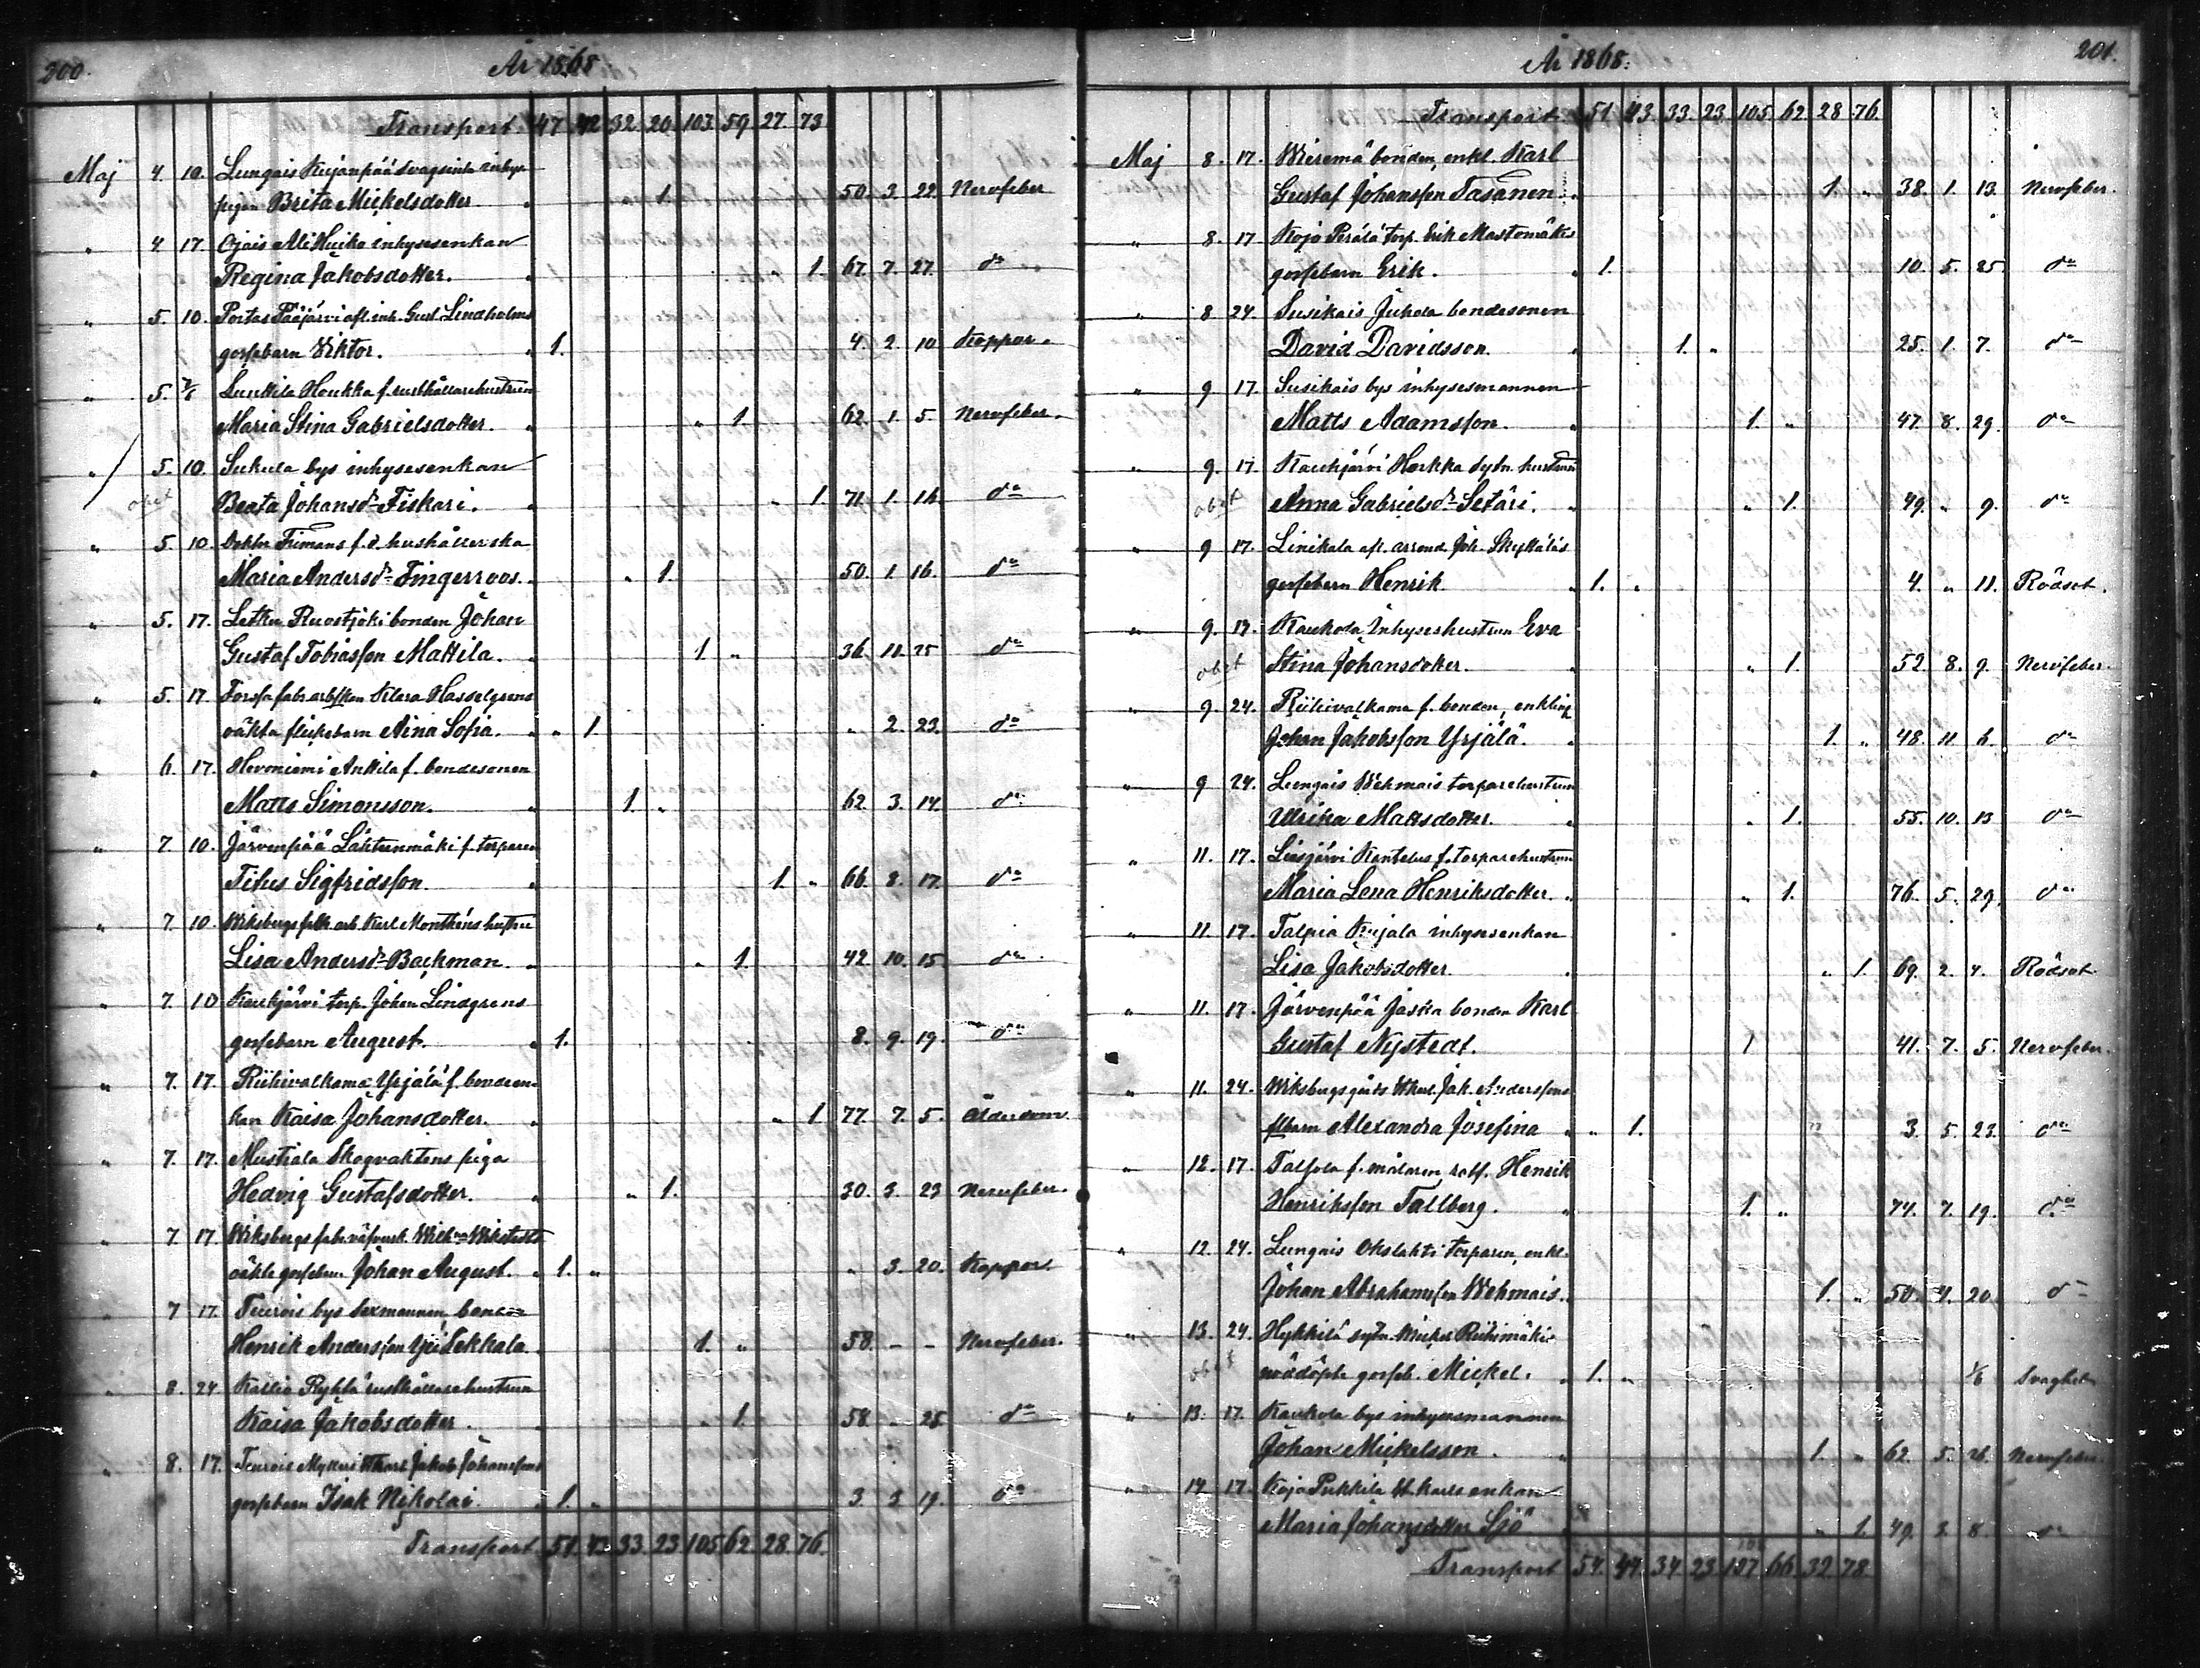 200.
År 1868
Transport 47 42 32. 20. 103. 59 27. 73.
Maj 4. 10. Lungais
pigan Brita Mickelsdotter. 1. 50. 3. 22. Nervfeber
" 4 17 Ojais Ali Huika inhysesenkan
Regina Jakobsdotter. " 1. 67. 7. 27. do
" 5. 10. Portas Pääjärvi afl. inh. Gust. Lindholms
gossebarn Viktor. 1. 4. 2. 10 Koppor.
" 5. Lunkila Houkka f. rusthållarehustrun
Maria Stina Gabrielsdotter. " 1. 62. 1. 5. Nervfeber.
" 5. 10. Sukula bys inhysesenkan
obet Beata Johansdr Fiskari. " 1. 71. 1. 16. do
" 5. 10. Doktor f. d. hushållerska
Maria Andersdr Fingerroos. " 1. 50. 1. 16. do
" 5. 17. Letku Ruostjoki bonden Johan
Gustaf Tobiasson Mattila. 1. " 36. 11. 25 do
" 5. 17. Forssa fabr. Klara Hasselgrens
oäkta flickebarn Aina Sofia. " 1. " 2. 23. do
" 6. 17. Hevoniemi Anttila f. bondesonen
Matts Simonsson. 1. " 62. 3. 14. do
" 7. 10. Järvenpää Lähteenmäki f. torparen
Titus Sigfridsson. 1. " 66. 8. 17. do
" 7. 10. Wiksbergs arb. Karl Monthéns hustru
Lisa Andersdr Backman. " 1. 42. 10. 15. do
" 7. 10 Kaukjärvi torp. Johan Lindgrens
gossebarn August. 1. 8. 9. 19. do
" 7. 17. Riihivalkama Yrjälä f. bondeen-
kan Kaisa Johansdotter. " 1 77. 7. 5. Ålderdom
" 7. 17. Mustiala Skogvaktens piga
Hedvig Gustafsdotter. " 1. 30. 3. 23 Nervfeber.
" 7 17. Wiksbergs fabr.
oäkta gossebarn Johan August. 1. " " 3. 20. Koppor.
" 7 17. Teurois bys sexmannen, bonden
Henrik Andersson Yli Lekkala 1. " 58. - - Nervfeber.
" 8. 24 Kallio Ryhtä rusthållarehustrun
Kaisa Jakobsdotter. " 1. 58. " 28. do
" 8. 17. Teurois Jakob Johanssons
gossebarn Isak Nikolai. 1. " 3. 3 19. do
Transport. 51. 43. 33. 23 105. 62. 28. 76.
201.
År 1868.
Transport 51. 43. 33. 23. 105. 62. 28 76.
Maj 8. 17. Wieremä bonden, enkl. Karl
Gustaf Johansson Tasanen. 1. " 38. 1. 13. Nervfeber.
" 8. 17 Kojo Perälä torp. Erik Mastomäkis
gossebarn Erik. 1. 10. 5. 25. do
" 8 24. Susikais Jukola bondesonen
David Davidsson. 1. " 25. 1. 7. do
" 9 17. Susikais bys inhysesmannen
Matts Adamsson. 1. " 47. 8. 29. do
" 9. 17. Kaukjärvi Horkka sytn. hustrun
obet Anna Gabrielsdr Setäri. " 1. 49. " 9. do
" 9 17. Linikala afl. arrend. Joh. Skyttäläs
gossebarn Henrik. 1. " 4. " 11. Rödsot.
" 9. 17. Kaukola Inhyseshustrun Eva
obet Stina Johansdotter. " 1. 52. 8. 9. Nervfeber.
" 9. 24. Riihivalkama f. bonden, enkling
Johan Jakobsson Yrjälä. 1. " 48. 11. 6. do
" 9 24. Lungais Wehmais torparehustrun
Ulrika Mattsdotter. " 1. 55. 10. 13 do
" 11. 17. Liesjärvi Kantalus f. torparehustrun
Maria Lena Henriksdotter. " 1. 76. 5. 29. do
" 11. 17. Talpia Kujala inhysesenkan
Lisa Jakobsdotter. " 1. 69. 2. 4. Rödsot.
" 11. 17. Järvenpää Jaska bonden Karl
Gustaf Nystedt. 1 41. 7. 5. Nervfeber.
" 11. 24. Wiksbergs gårds Jak. Anderssons
flbarn Alexandra Josefina " 1. 3. 5. 23. do
" 12. 17. Talsola f. målaren Henrik
Henriksson Tallberg. 1. " 74. 7. 19. do
" 12. 24. Lungais Okslahti torparen, enkl.
Johan Abrahamsson Wehmais. 1. " 50. 4. 20. do
" 13. 24. Hykkilä sytn. Mickel Riihimäkis
obet nöddöpte gosseb. Mickel. 1. " 1/6 Svaghet
" 13. 17. Kaukola bys inhysesmannen
Johan Mickelsson. 1. " 62. 5. 26. Nervfeber.
" 14. 17. Kojo Pukkila enkan
Maria Johansdotter Sjö " 1. 49. 3. 8. do
Transport 54. 44. 34. 23. 107 66. 32 78.